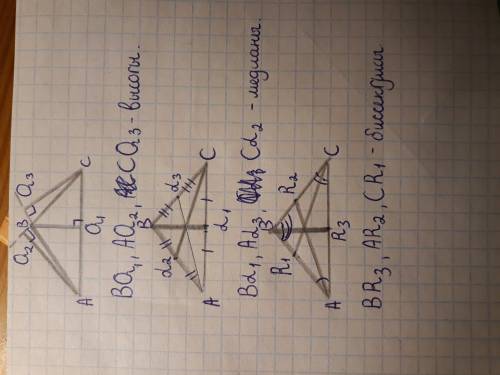 a₂ B a₃
A a₁ C
Ba₁, Aa₂, Ca₃ - высоты.
B
d₂ d₃
A d₁ C
Bd₁, Ad₃, Cd₂ - медианы.
B
R₁ R₂
A R₃ C
BR₃, AR₂, CR₁ - биссектрисы